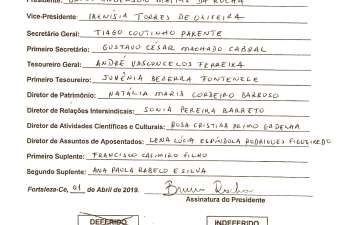 Vice-Presidente: IRENÍSIA TORRES DE OLIVEIRA
Secretário Geral: TIAGO COUTINHO PARENTE
Primeiro Secretário: GUSTAVO CÉSAR MACHADO CABRAL
Tesoureiro Geral: ANDRÉ VASCONCELOS FERREIRA
Primeiro Tesoureiro: JUVÊNIA BEZERRA FONTENELE
Diretor de Patrimônio: NATÁLIA MARIA CORDEIRO BARROSO
Diretor de Relações Intersindicais: SONIA PEREIRA BARRETO
Diretor de Atividades Científicas e Culturais: ROSA CRISTINA PRIMO GADELHA
Diretor de Assuntos de Aposentados: LENA LÚCIA ESPÍNDOLA RODRIGUES FIGUEIREDO
Primeiro Suplente: FRANCISCO CASIMIRO FILHO
Segundo Suplente: ANA PAULA RABELO E SILVA
Fortaleza-Ce, 01 de Abril de 2019. Bruno Rocha
Assinatura do Presidente
DEFERIDO INDEFERIDO